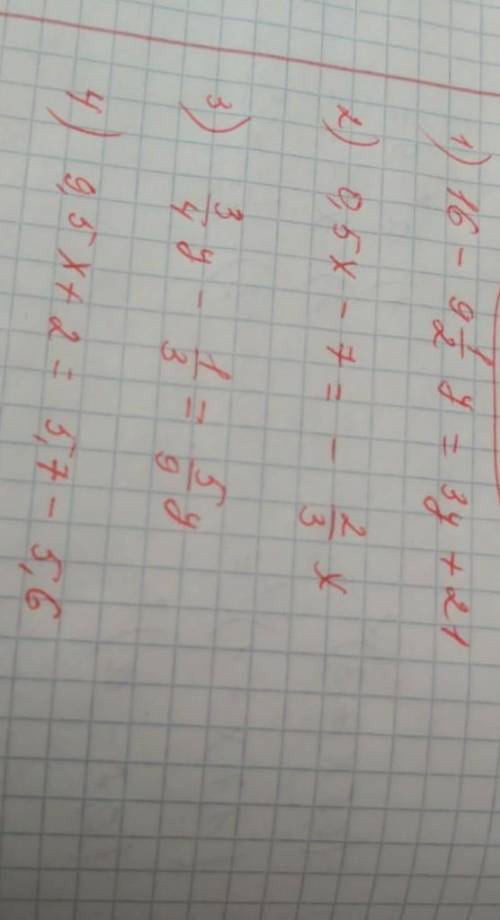 1) 16 - 9 1/2 y = 3y + 21
2) 0,5x - 7 = - 2/3 x
3) 3/4 y - 1/3 = 5/9 y
4) 9,5x + 2 = 5,7 - 5,6